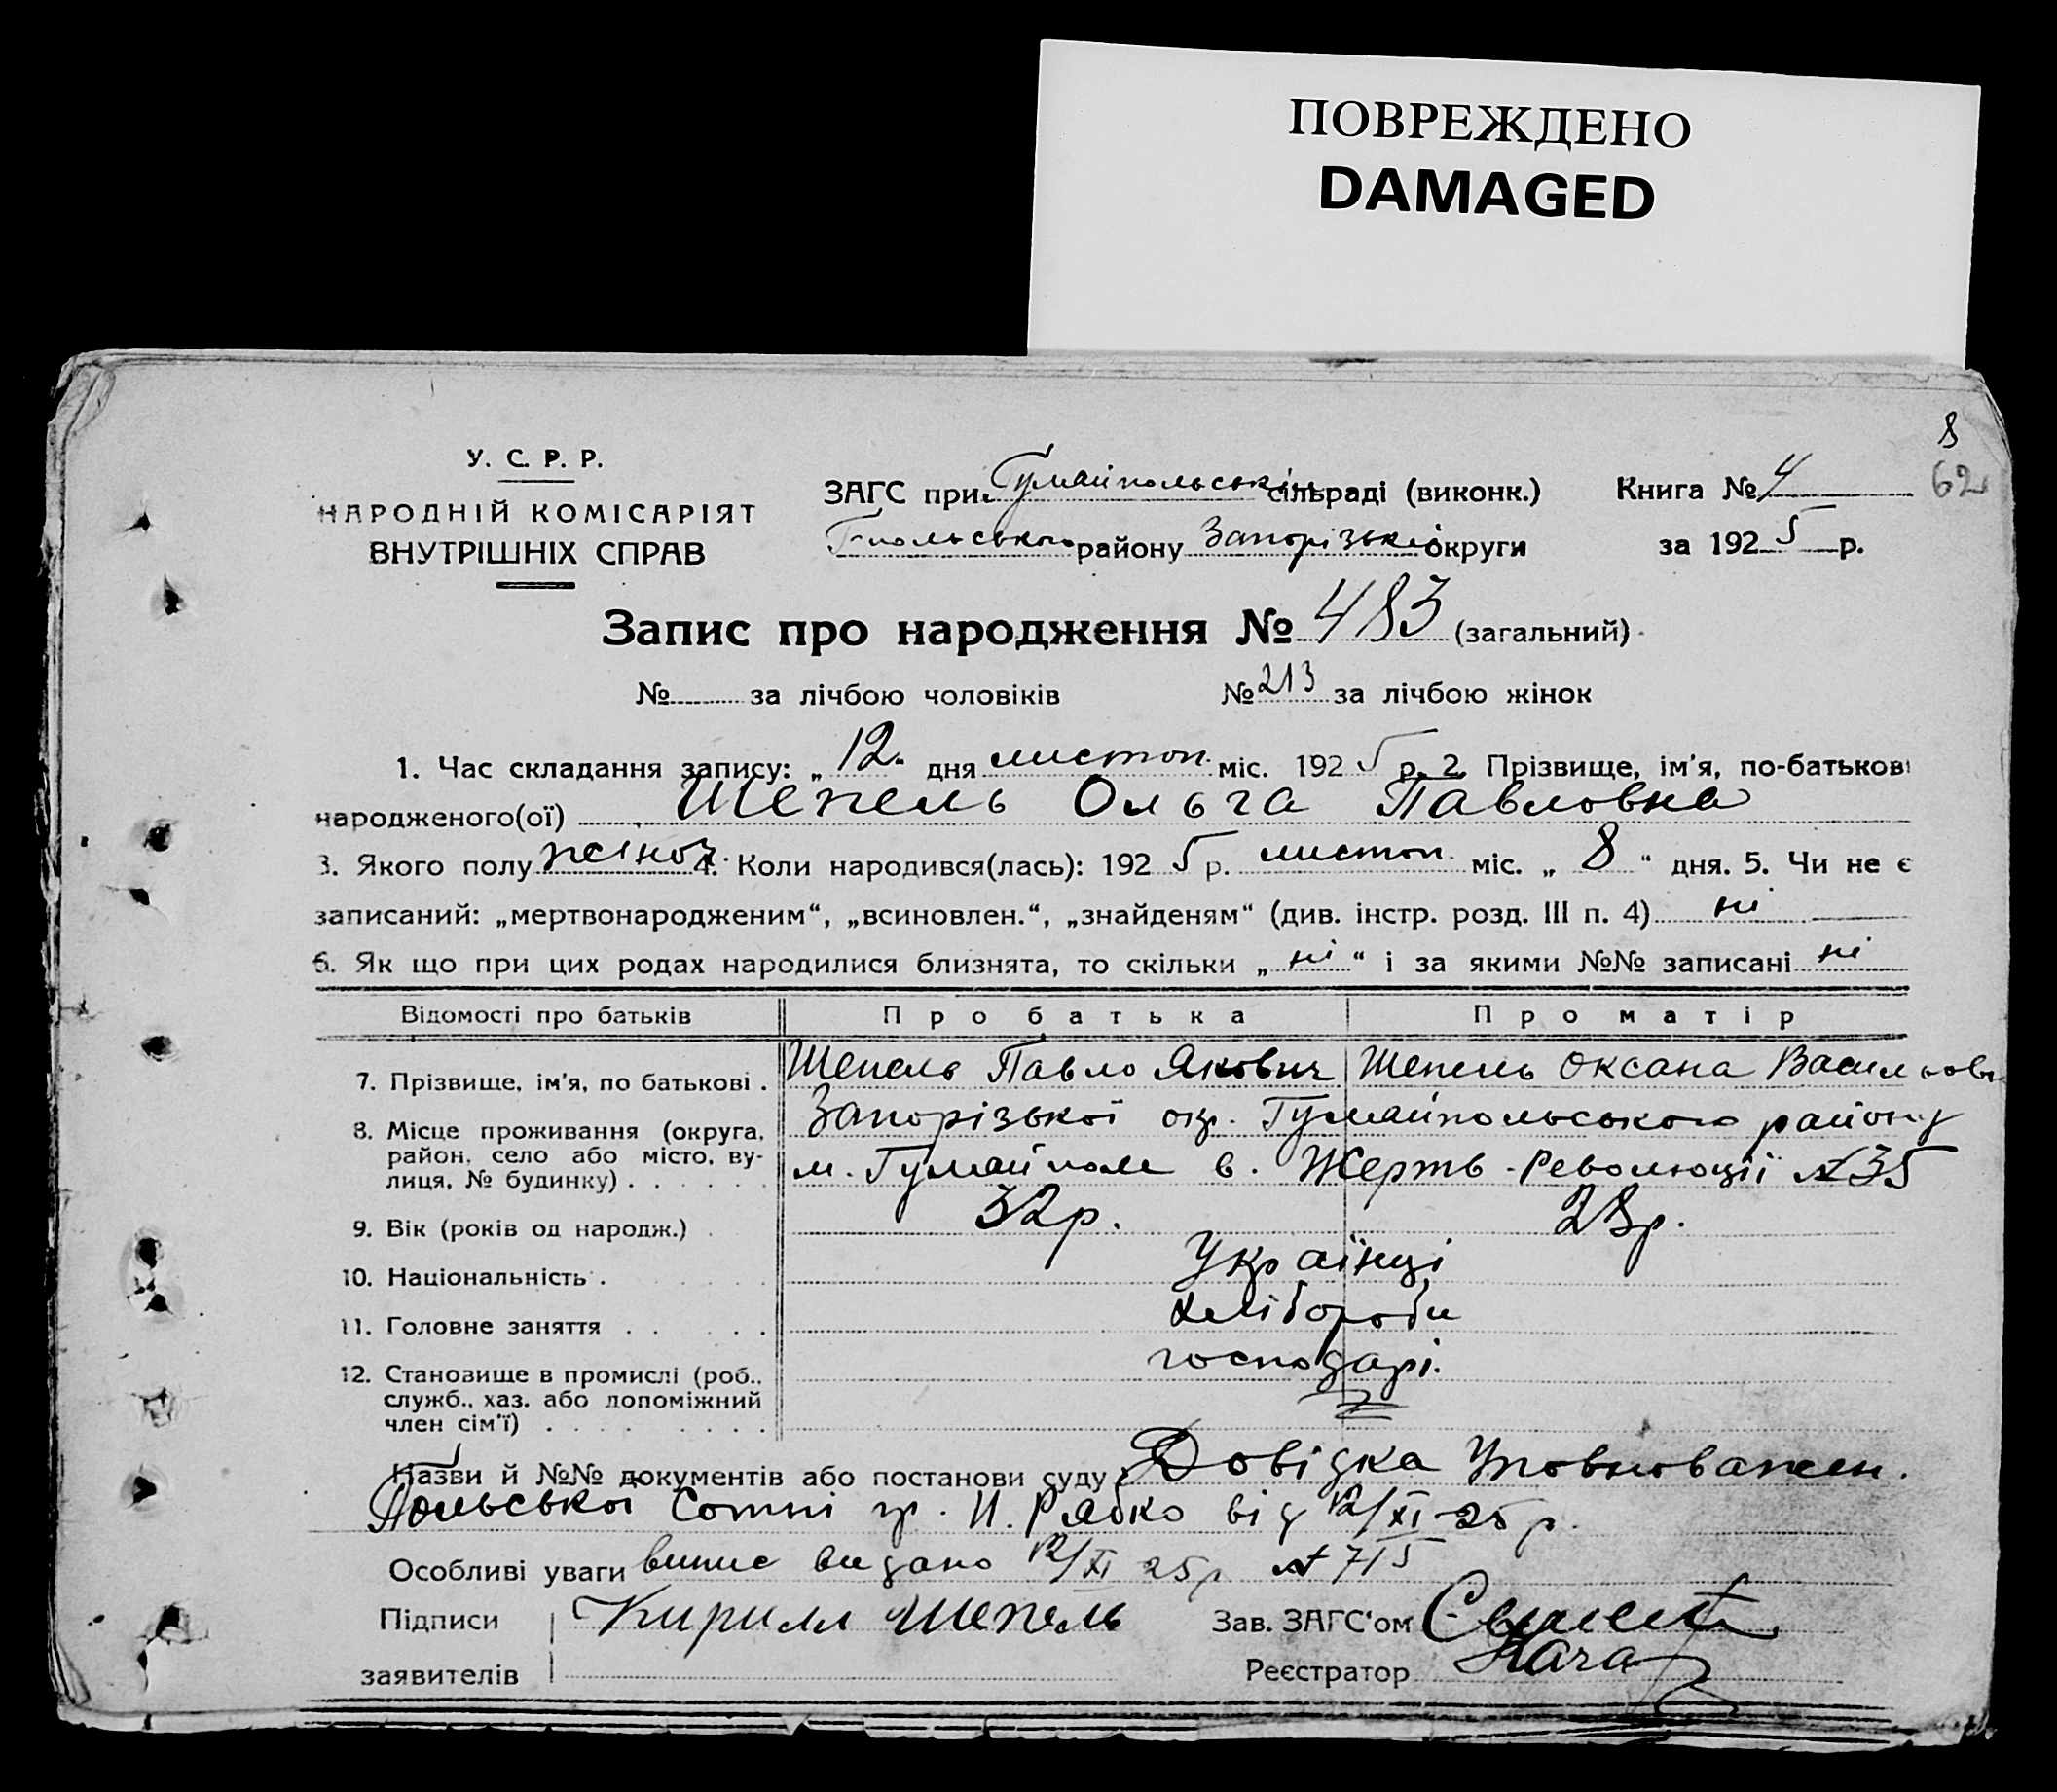 ПОВРЕЖДЕНО
DAMAGED
8
62
У. С. Р. Р.
НАРОДНІЙ КОМІСАРІЯТ
ВНУТРІШНІХ СПРАВ
ЗАГС при Гумайпольськ сільраді (виконк.)
Г-польського району Запорізької округи
Книга № 4
за 1925 р.
Запис про народження № 483 (загальний)
№ за лічбою чоловіків № 213 за лічбою жінок
1. Час складання запису: „12“ дня листоп. міс. 1925 р. 2. Прізвище, ім'я, по-батькові
народженого(ої) Шепель Ольга Павловна
3. Якого полу жіноч. 4. Коли народився(лась): 1925 р. листоп. міс. „8“ дня. 5. Чи не є
записаний: „мертвонародженим“, „всиновлен.“, „знайденям“ (див. інстр. розд. III п. 4) ні
6. Як що при цих родах народилися близнята, то скільки „ні“ і за якими №№ записані ні
Відомості про батьків Про батька Про матір
7. Прізвище, ім'я, по батькові . Шепель Павло Якович Шепель Оксана Васильовн
8. Місце проживання (округа, Запорізької окр. Гумайпольського району
район, село або місто, ву-
лиця, № будинку) . . . . . . м. Гумайполе в. Жертв-Революції №35
9. Вік (років од народж.) . 32р. 28р.
10. Національність . Українці
11. Головне заняття . . . . . хлібороби
12. Становище в промислі (роб., господарі.
служб., хаз. або допоміжний
член сім'ї) . . . . . . . .
Назви й №№ документів або постанови суду Довідка Уповноважен.
Польської Сотні гр. И. Рябко від 12/XI-25 р.
Особливі уваги випис видано 12/XI 25р № 715
Підписи Кирилл Шепель Зав. ЗАГС'ом
заявителів Реєстратор